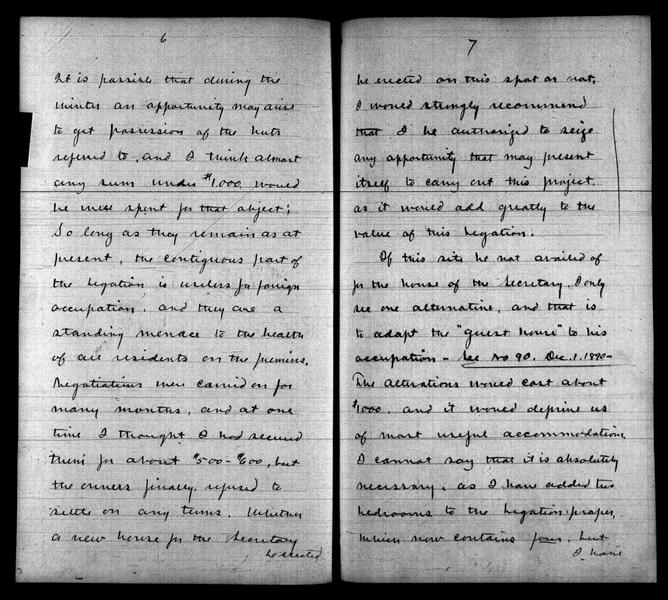 6
It is possible that during the
winter an opportunity may arise
to get possession of the huts
referred to, and I think almost
any sum under $1000. would
be well spent for that object;
So long as they remain as at
present, the contiguous part of
the legation is useless for foreign
occupation, and they are a
standing menace to the health
of all residents on the premises.
Negotiations were carried on for
many months, and at one
time I thought I had secured
them for about $500-$600, but
the owners finally refused to
settle on any terms. Whether
a new house for the Secretary
be erected
7
be erected on this spot or not,
I would strongly recommend
that I be authorized to seize
any opportunity that may present
itself to carry out this project.
as it would add greatly to the
value of this Legation.
If this site be not availed of
for the house of the Secretary, I only
see one alternative, and that is
to adapt the "guest house" to his
occupation - See No 90. Dec. 1. 1890-
The alterations would cost about
$1000. and it would deprive us
of most useful accommodation.
I cannot say that it is absolutely
necessary, as I have added two
bedrooms to the legation proper,
which now contains four, but
I have